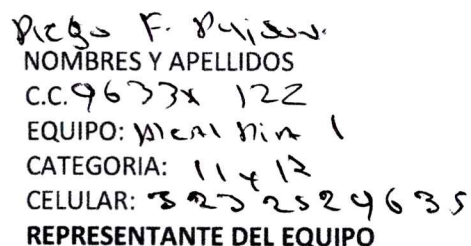 Diego F.
NOMBRES Y APELLIDOS
C.C. 122
EQUIPO: 1
CATEGORIA: 11 y 12
CELULAR: 323 2529635
REPRESENTANTE DEL EQUIPO